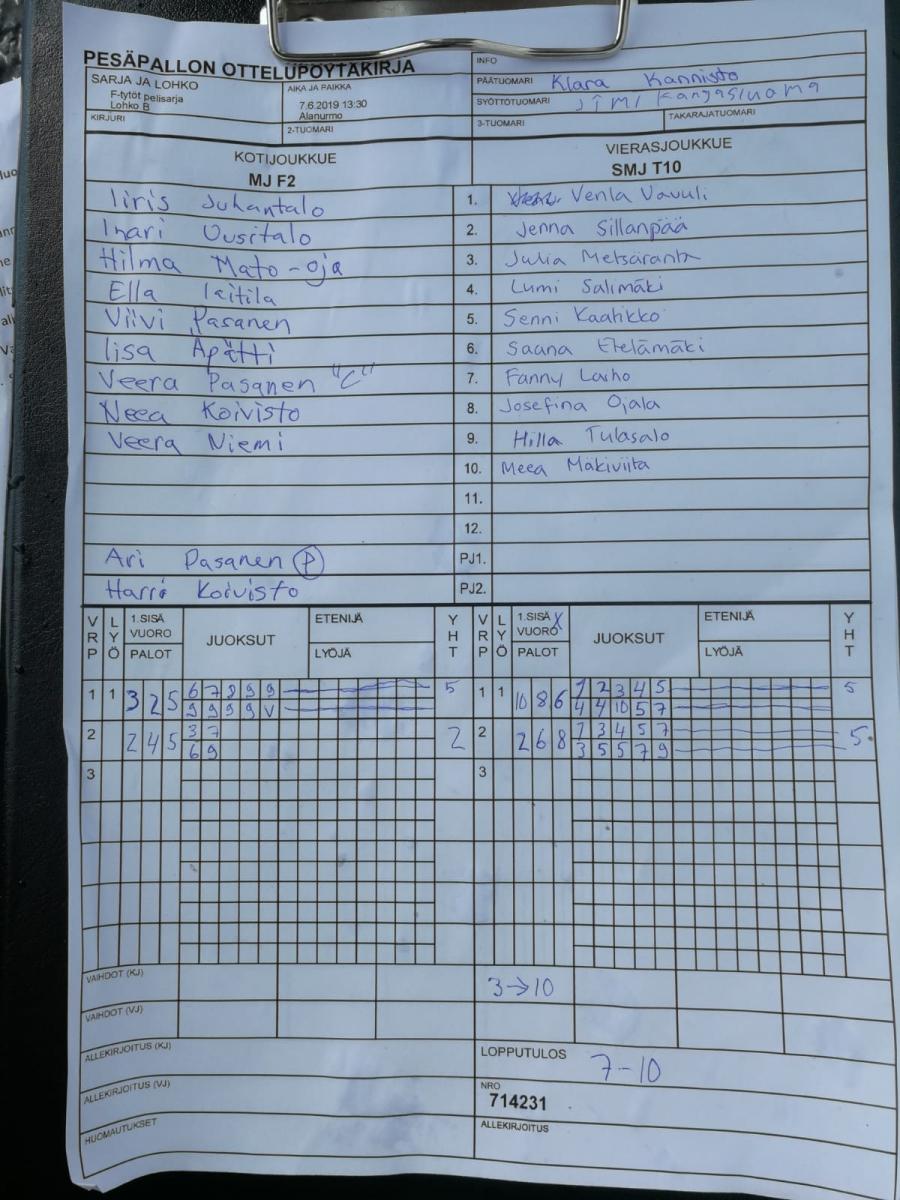 PESÄPALLON OTTELUPÖYTÄKIRJA
INFO
SARJA JA LOHKO
F-tytöt pelisarja
Lohko B
AIKA JA PAIKKA
7.6.2019 13:30
Alanurmo
PÄÄTUOMARI Klara Kannisto
SYÖTTÖTUOMARI Jimi Kangasluoma
KIRJURI
2-TUOMARI
3-TUOMARI
TAKARAJATUOMARI
KOTIJOUKKUE
MJ F2
VIERASJOUKKUE
SMJ T10
Iiris Juhantalo 1. Venla Vavuli
Inari Uusitalo 2. Jenna Sillanpää
Hilma Mato-oja 3. Julia Metsäranta
Ella 4. Lumi Salimäki
Viivi Pasanen 5. Senni Kaatikko
Iisa Apätti 6. Saana Etelämäki
Veera Pasanen "C" 7. Fanny Laho
Neea Koivisto 8. Josefina Ojala
Veera Niemi 9. Hilla Tulasalo
10. Meea Mäkiviita
11.
12.
Ari Pasanen P PJ1.
Harri Koivisto PJ2.
VRP LYÖ 1.SISÄ VUORO PALOT JUOKSUT ETENIJÄ LYÖJÄ YHT VRP LYÖ 1.SISÄ VUORO X PALOT JUOKSUT ETENIJÄ LYÖJÄ YHT
1 1 3 2 5 6 7 8 9 9 5 1 1 10 8 6 1 2 3 4 5 5
9 9 9 9 V 4 4 10 5 7
2 2 4 5 3 7 2 2 2 6 8 1 3 4 5 7 5.
6 9 3 5 5 7 9
3 3
VAIHDOT (KJ) 3→10
VAIHDOT (VJ)
ALLEKIRJOITUS (KJ)
LOPPUTULOS 7-10
ALLEKIRJOITUS (VJ)
NRO
714231
HUOMAUTUKSET
ALLEKIRJOITUS